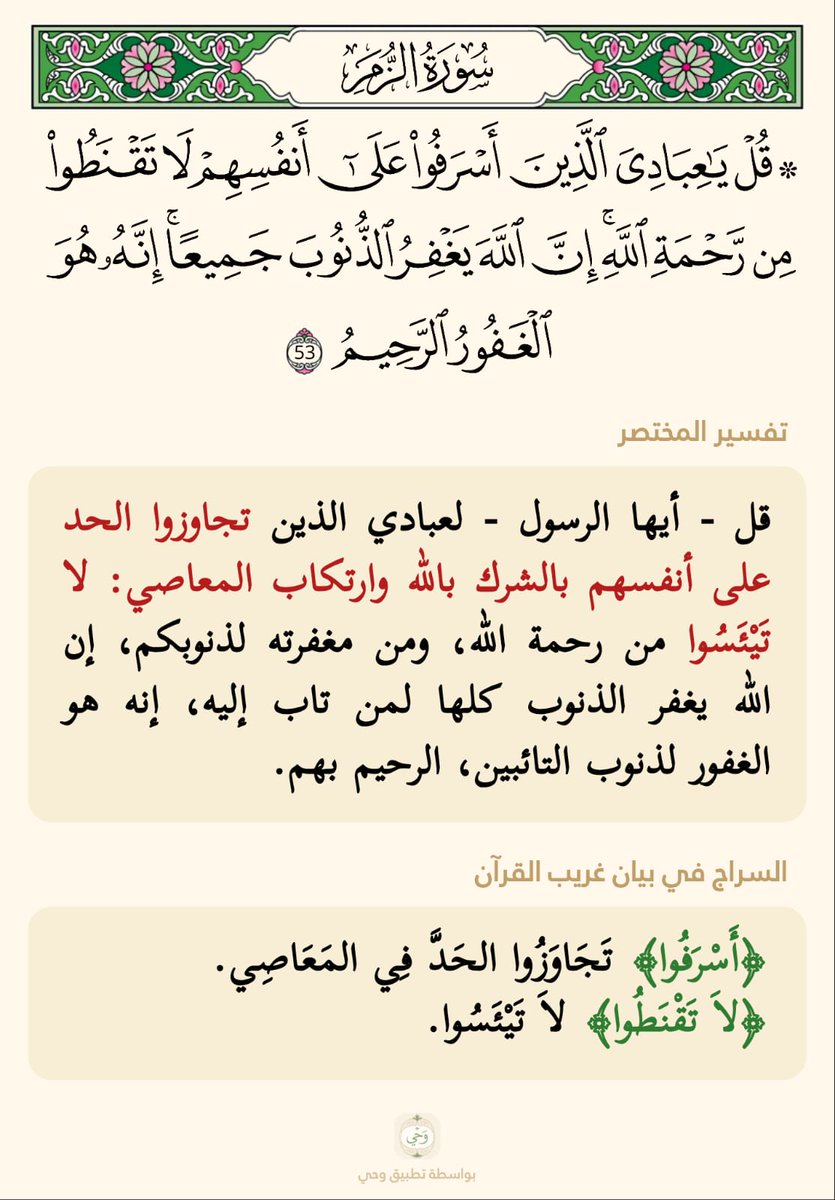 سُورَةُ الزُّمَرِ
۞ قُلْ يَٰعِبَادِىَ ٱلَّذِينَ أَسْرَفُوا۟ عَلَىٰٓ أَنفُسِهِمْ لَا تَقْنَطُوا۟
مِن رَّحْمَةِ ٱللَّهِ ۚ إِنَّ ٱللَّهَ يَغْفِرُ ٱلذُّنُوبَ جَمِيعًا ۚ إِنَّهُۥ هُوَ
ٱلْغَفُورُ ٱلرَّحِيمُ 53
تفسير المختصر
قل - أيها الرسول - لعبادي الذين تجاوزوا الحد
على أنفسهم بالشرك بالله وارتكاب المعاصي: لا
تَيْئَسُوا من رحمة الله، ومن مغفرته لذنوبكم، إن
الله يغفر الذنوب كلها لمن تاب إليه، إنه هو
الغفور لذنوب التائبين، الرحيم بهم.
السراج في بيان غريب القرآن
﴿أَسْرَفُوا﴾ تَجَاوَزُوا الحَدَّ فِي المَعَاصِي.
﴿لاَ تَقْنَطُوا﴾ لاَ تَيْئَسُوا.
وَحْي
بواسطة تطبيق وحي